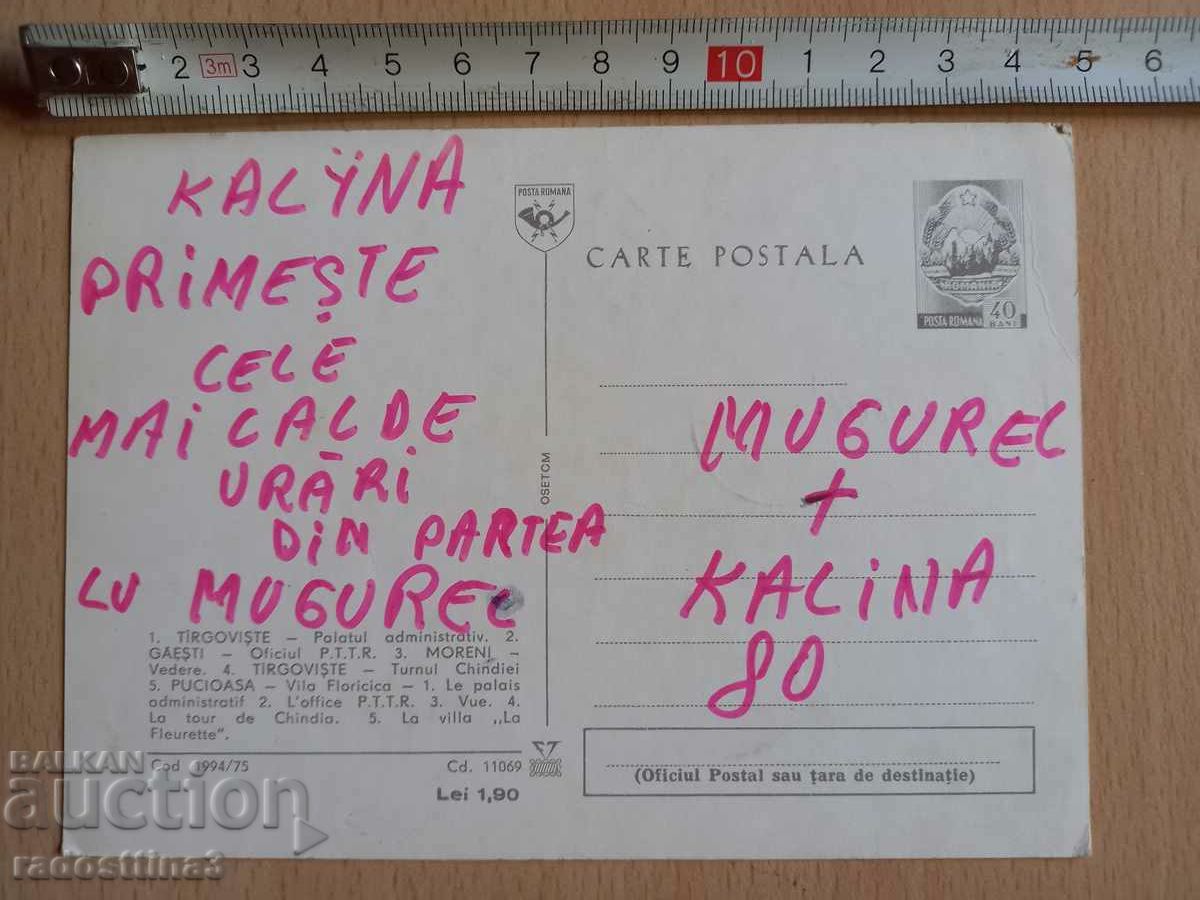 2 3m 3 4 5 6 7 8 9 10 1 2 3 4 5 6
KALŸNA
PRIMEȘTE
CELE
MAI CALDE
URĂRI
DIN PARTEA
LU MUGUREL
1. TÎRGOVIȘTE – Palatul administrativ. 2.
GĂEȘTI – Oficiul P.T.T.R. 3. MORENI –
Vedere. 4. TÎRGOVIȘTE – Turnul Chindiei
5. PUCIOASA – Vila Floricica – 1. Le palais
administratif 2. L'office P.T.T.R. 3. Vue. 4.
La tour de Chindia. 5. La villa „La
Fleurette".
Cod 1994/75 Cd. 11069
Lei 1,90
OSETCM
POSTA ROMANA
CARTE POSTALA
ROMANIA
POSTA ROMANA 40 BANI
MUGUREL
+
KALINA
80
(Oficiul Postal sau țara de destinație)
BALKAN
auction
radosttiina3